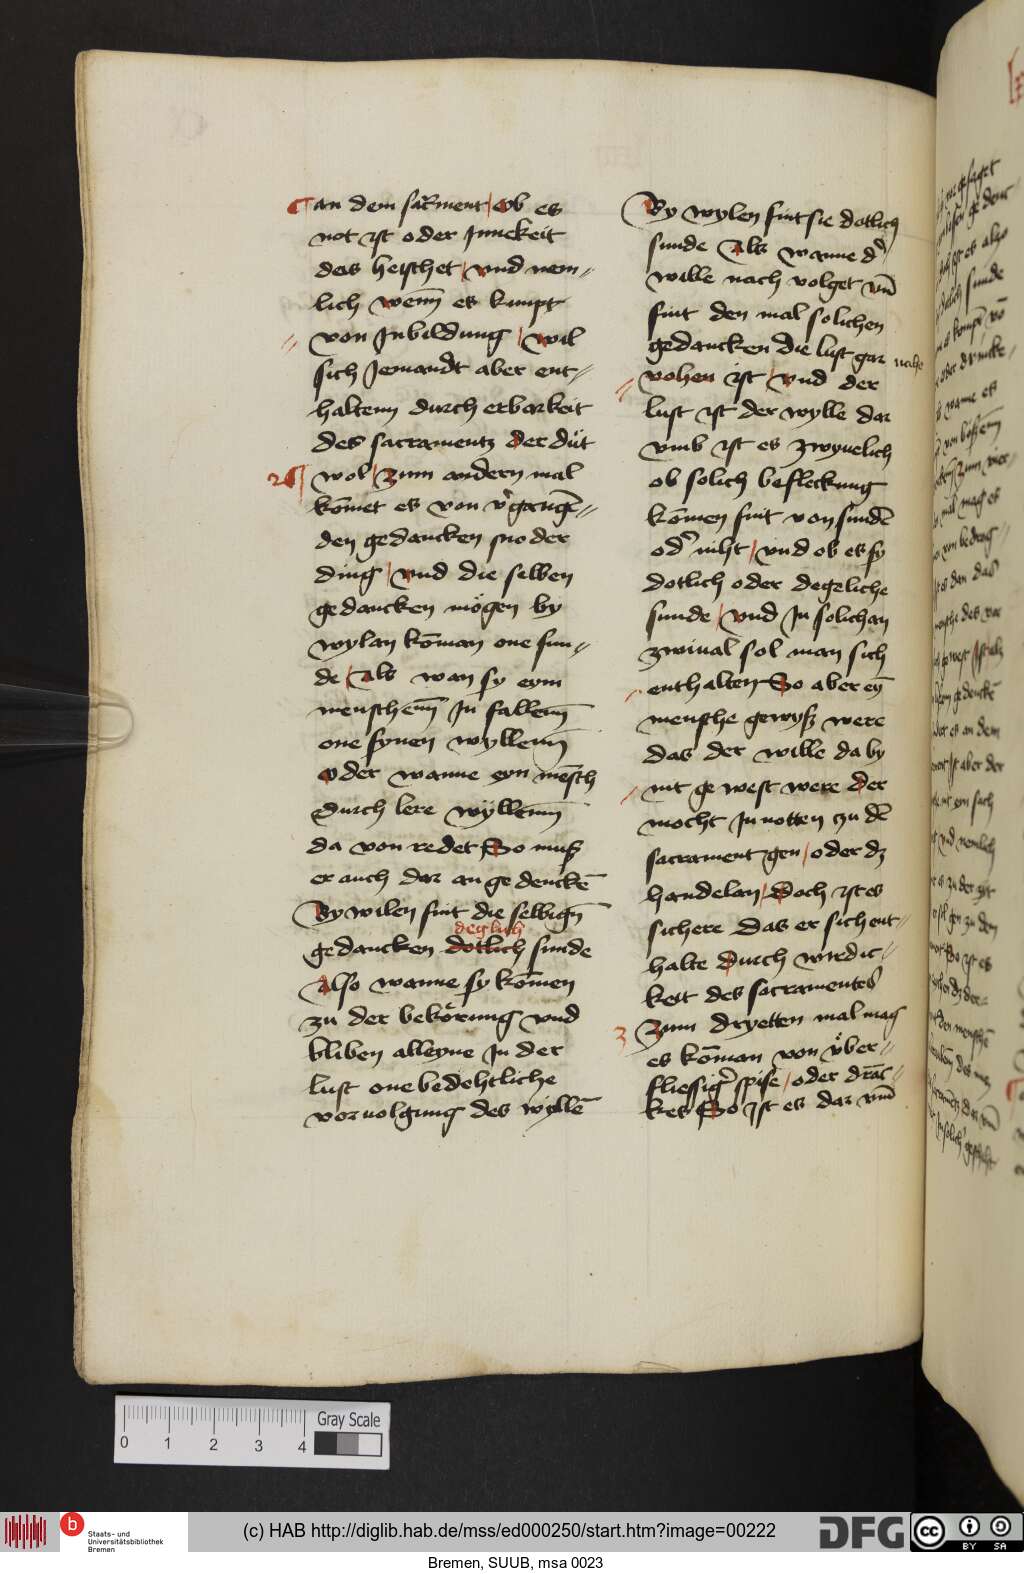 an dem sacrment / Ob es
not ist oder Innekeit
das heischet / vnd nem⸗
lich wenn̄ es kumpt
von Inbildung / wil
sich Jemandt aber ent⸗
haltenn durch erbarkeit
des sacramentz der düt
2 wol / Zum andern mal
kōmet es von v̉gangē⸗
den gedancken snoder
ding / vnd die selben
gedancken mögen by
wylan kōman one sun⸗
de / Als wan sy eym
menschenn̄ In fallenn̄
one synen wyllenn̄
oder wanne eyn mēsch
durch lere wÿllenn̄
da von redet So muß
er auch dar an ge denckē
By wilen sint die selbign̄
deglich
gedancken dotlich sunde
Also wanne sy kōmen
zu der bekörung vnd
bliben alleyne in der
lust one bedehtliche
voruolgung des wyllē
By wylen sint sie dotlich
sunde Als wanne d̉
wille nach volget vn̄
sint den mal solichen
gedancken die lust gar nahe
vohen ist / vnd der
lust ist der wylle dar
vmb ist es zwyuelich
ob solich befleckung
kōmen sint von sundē
od̉ niht / vnd ob es sy
dotlich oder degeliche
sunde / vnd In solichan
zwiual sol man sich
enthalten So aber eȳ
mensche gewyß were
das der wille da by
nit ge west were der
mocht In notten zu dē
sacrament gen / oder dz
handelan / Doch ist es
sichere das er sich ent⸗
halte durch wirdic⸗
keit des sacramentes
3 Zum dryetten mal mag
es kōman von v̊ber⸗
fliessig̉ spise / oder drāc⸗
kes So ist es dar vmm̄
0 1 2 3 4
Gray Scale
b Staats- und
Universitätsbibliothek
Bremen
(c) HAB http://diglib.hab.de/mss/ed000250/start.htm?image=00222
DFG
cc BY SA
Bremen, SUUB, msa 0023